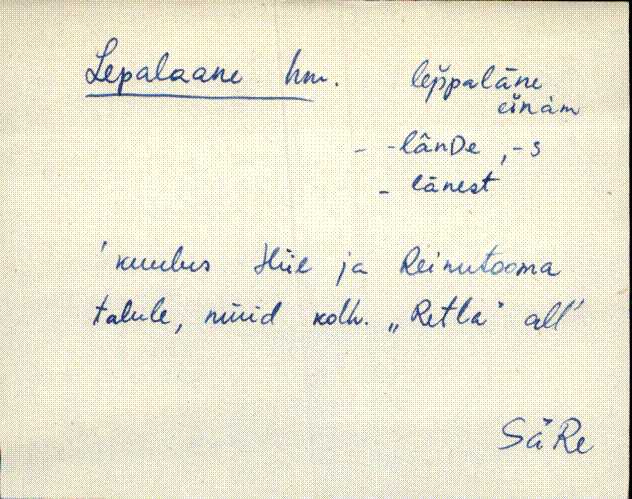 Lepalaane hm. lep̆palāne
ein̆äm
- -lânDe, -s
- lānest
'kuulus Hüe ja Reinutooma
talule, nüüd kolh. „Retla" all'
SäRe